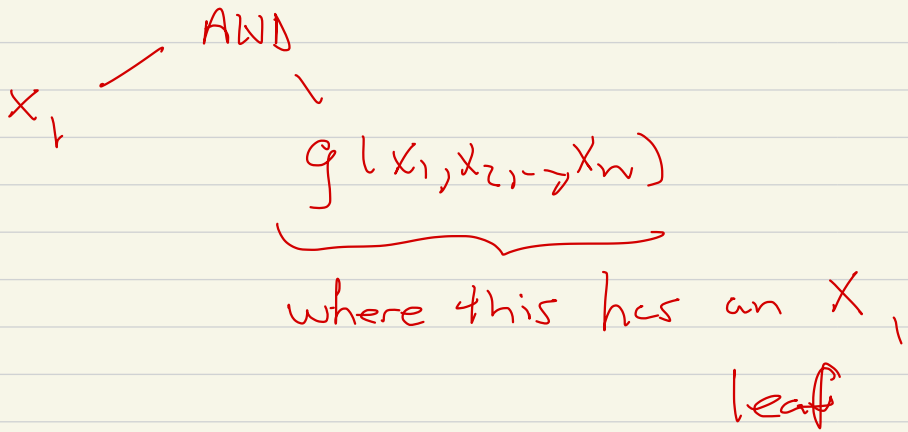 AND
X₁
g(x₁,x₂,--,xₙ)
where this has an X₁
leaf